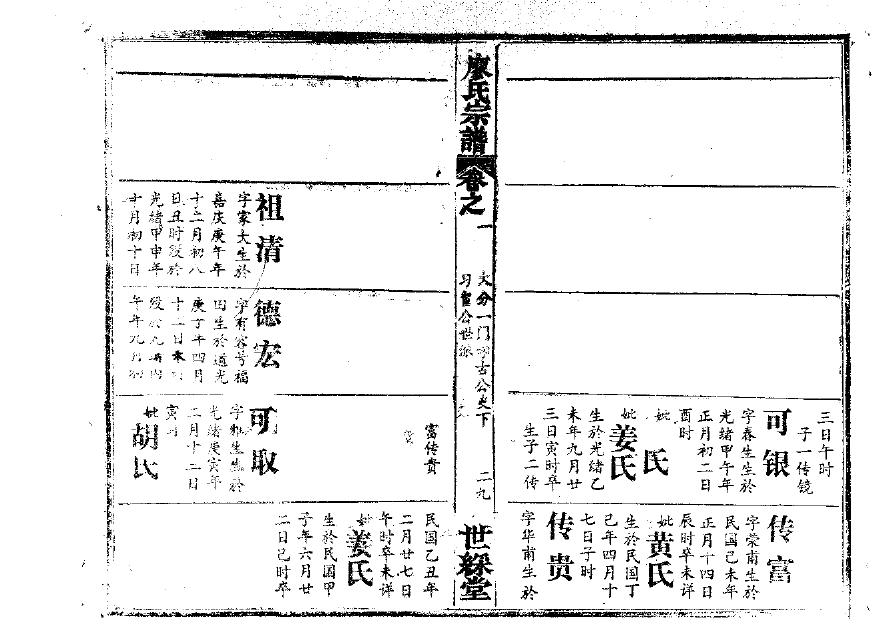 三日午时
子一传镜
可银
字春生生於
光緒甲午年
正月初二日
酉时
妣　氏
妣姜氏
生於光緒乙
未年九月廿
三日寅时卒
生子二传
传富
字荣甫生於
民国己未年
正月十四日
辰时卒未详
妣黄氏
生於民国丁
己年四月十
七日子时
传贵
字华甫生於
廖氏宗譜
卷之一
大分一门
古公
下
二九
世綵堂
富传贵
民国乙丑年
二月廿七日
午时卒未详
妣姜氏
生於民国甲
子年六月廿
二日己时卒
祖清
字家大生於
嘉庆庚午年
十二月初八
日丑时殁於
光緒甲申年
十月初十日
德宏
字有容号福
田生於道光
庚子年四月
十二日
殁於
可取
字
光緒庚寅年
二月十二日
寅时
妣胡氏